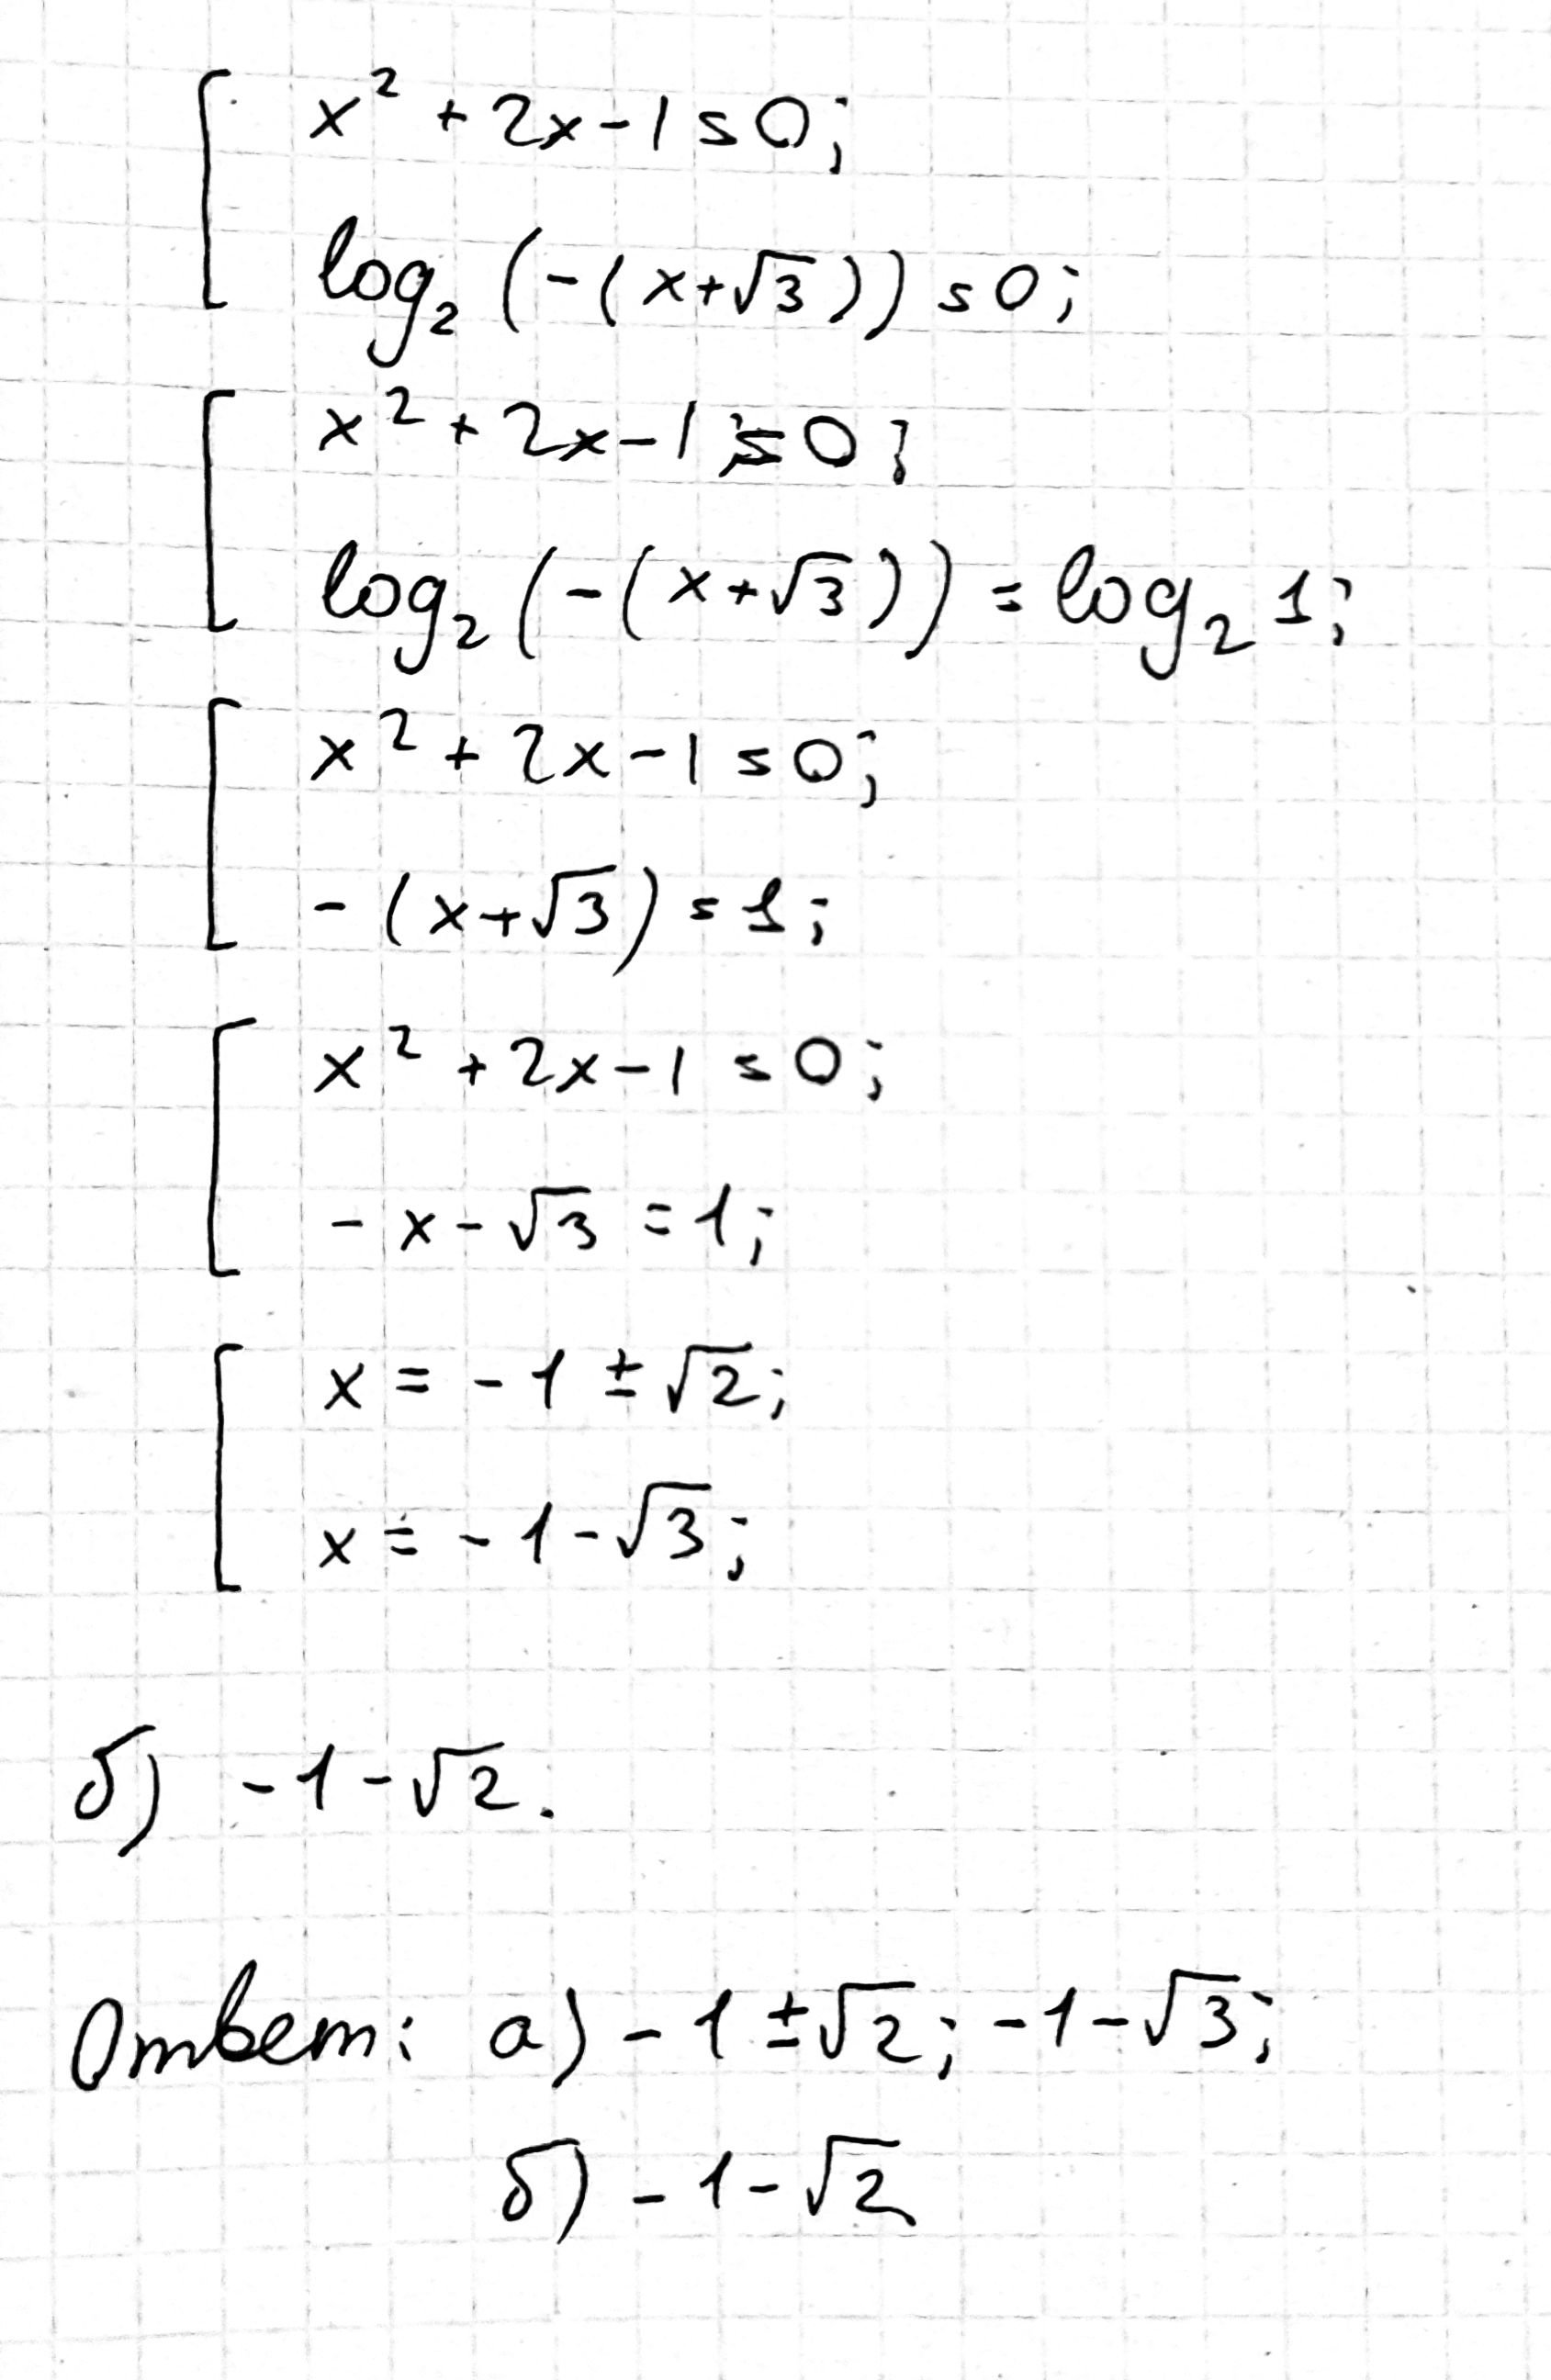 x² + 2x - 1 = 0;
log₂ (-(x+√3)) = 0;
x² + 2x - 1 = 0;
log₂ (-(x+√3)) = log₂ 1;
x² + 2x - 1 = 0;
- (x+√3) = 1;
x² + 2x - 1 = 0;
- x - √3 = 1;
x = - 1 ± √2;
x = - 1 - √3;
б) - 1 - √2.
Ответ: а) - 1 ± √2; - 1 - √3;
б) - 1 - √2